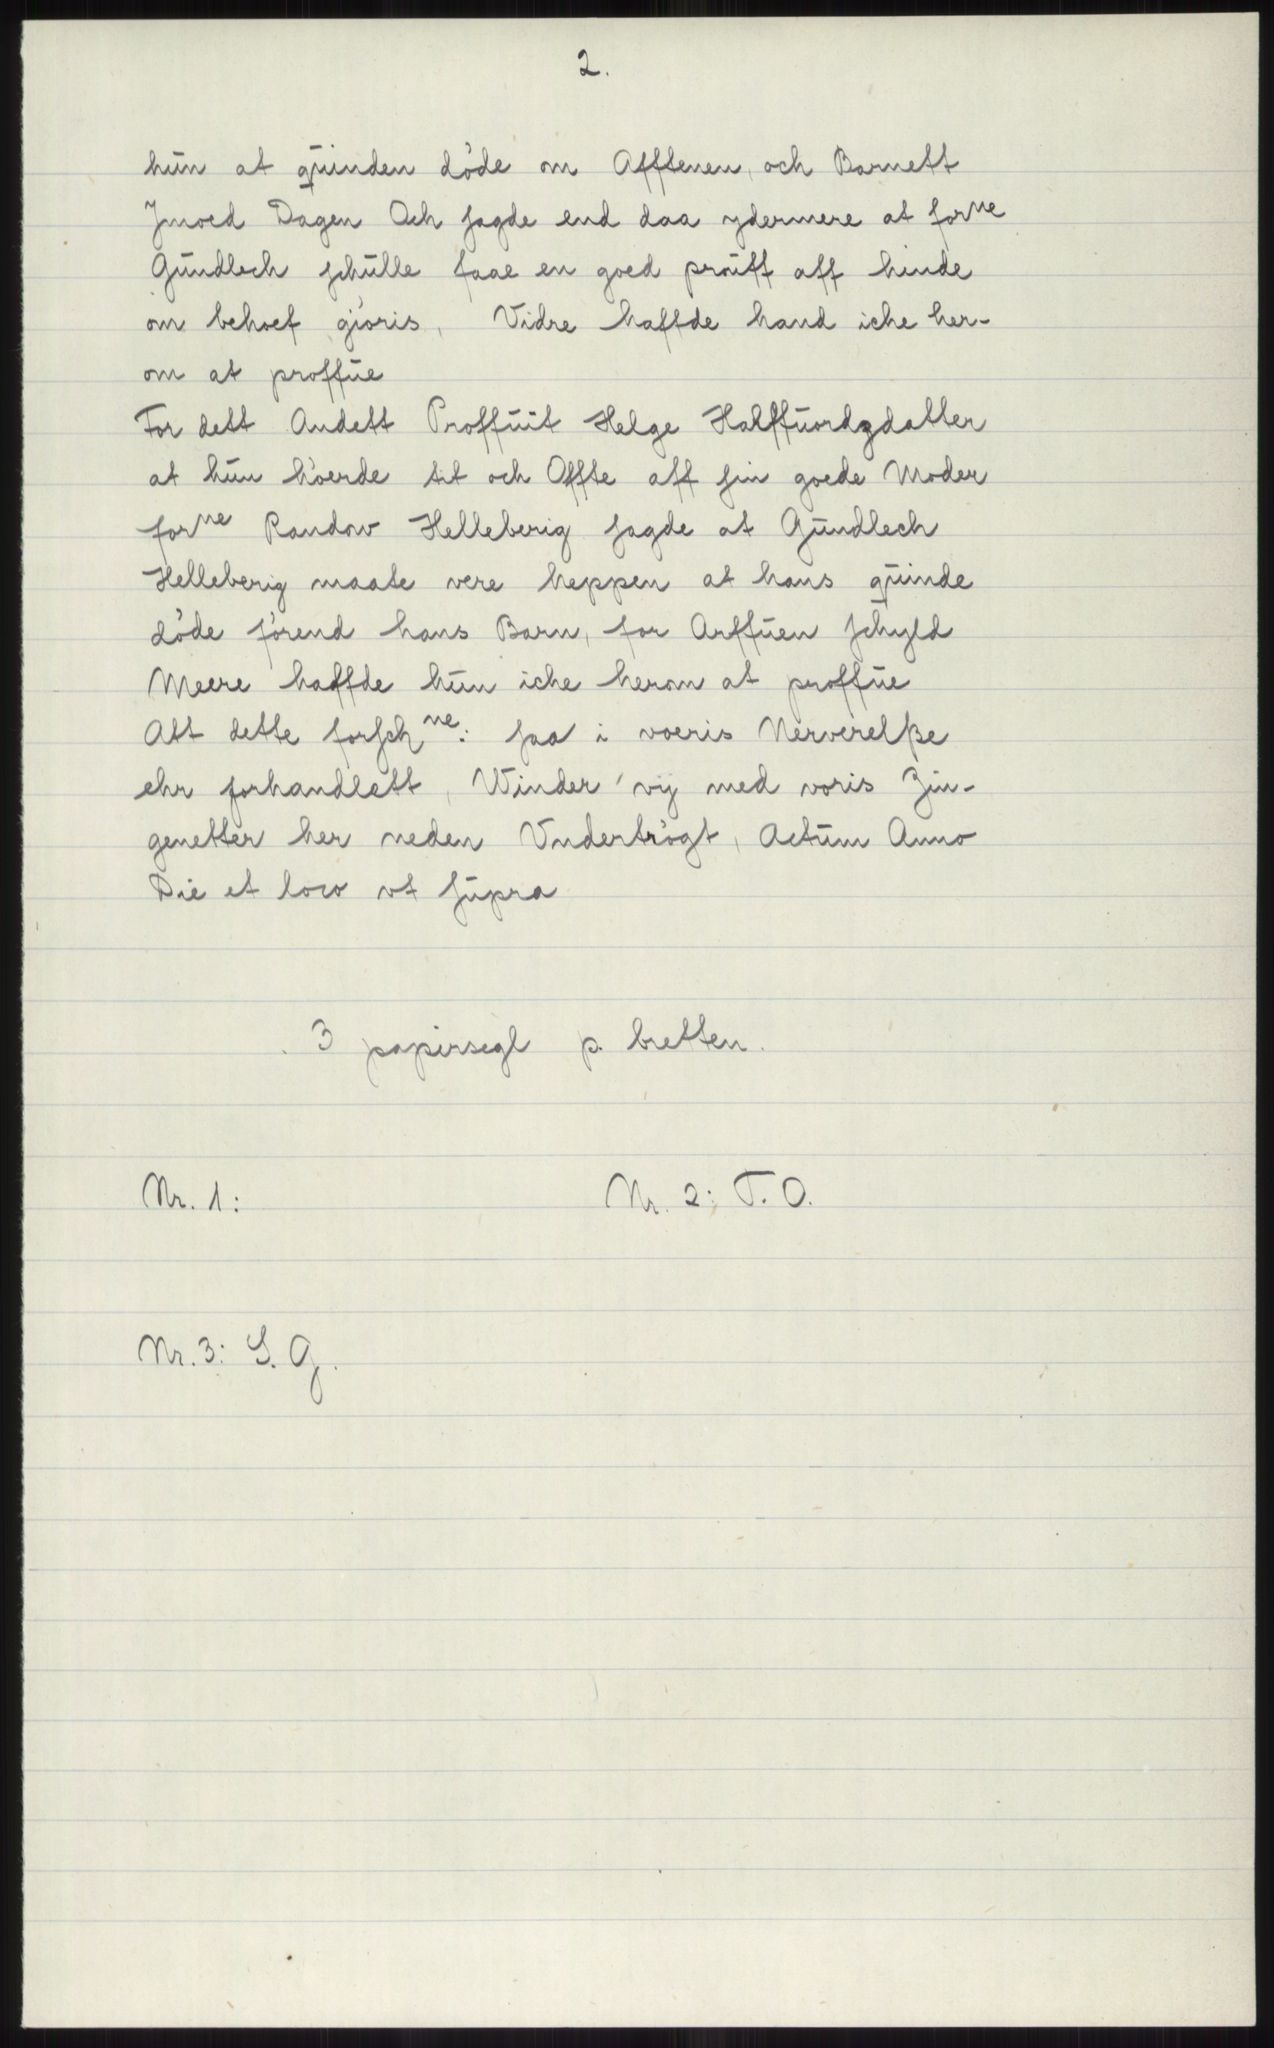 2.
hun at quinden döde om Afftenen, och Barnett
Jmoed Dagen Och sagde end daa ydermere at forne
Gundlech schulle faae en goed prouff aff hinde
om behoef giöris, Vidre haffde hand iche her-
om at proffue
For dett Andett Proffuit Helge Halffuordzdatter
at hun höerde tit och Offte aff sin goede Moder
forne Randow Helleberig sagde at Gundlech
Helleberig maate vere heppen at hans quinde
döde förend hans Barn, for Arffuen schyld
Meere haffde hun iche herom at proffue
Att dette forschne: saa i voeris Nerverelße
ehr forhandlett, Winder vij med voris Zin-
genetter her neden Vndertrögt, Actum Anno
Die et loco vt supra
3 papirsegl p. bretten.
Nr. 1:
Nr. 2: T. O.
Nr. 3: S. G.